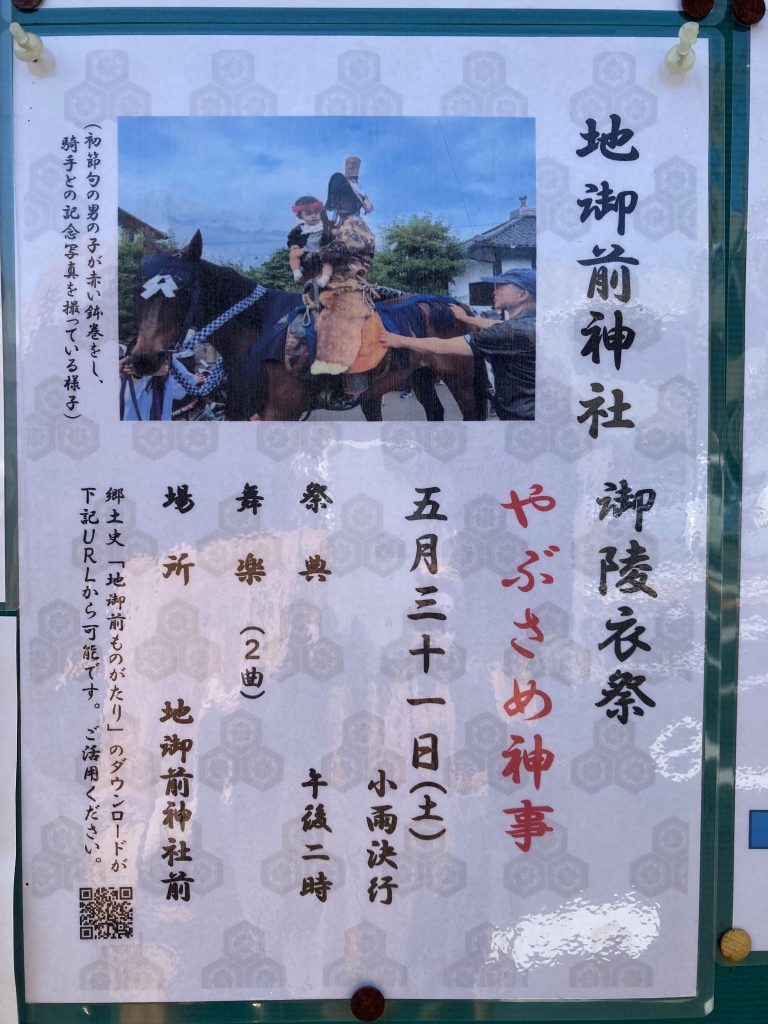 地御前神社 御陵衣祭
やぶさめ神事
五月三十一日(土)
小雨決行
祭典 午後二時
舞楽 (2曲)
場所 地御前神社前
郷土史「地御前ものがたり」のダウンロードが
下記URLから可能です。ご活用ください。
(初節句の男の子が赤い鉢巻をし、
騎手との記念写真を撮っている様子)